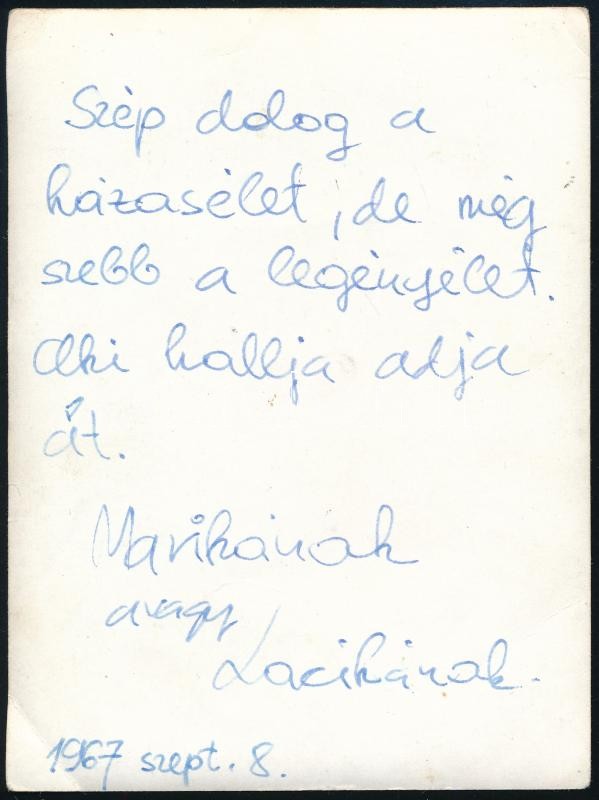 Szép dolog a
házasélet, de még
szebb a legényélet.
Aki hallja adja
át.
Marikának
avagy
Lacikának.
1967 szept. 8.